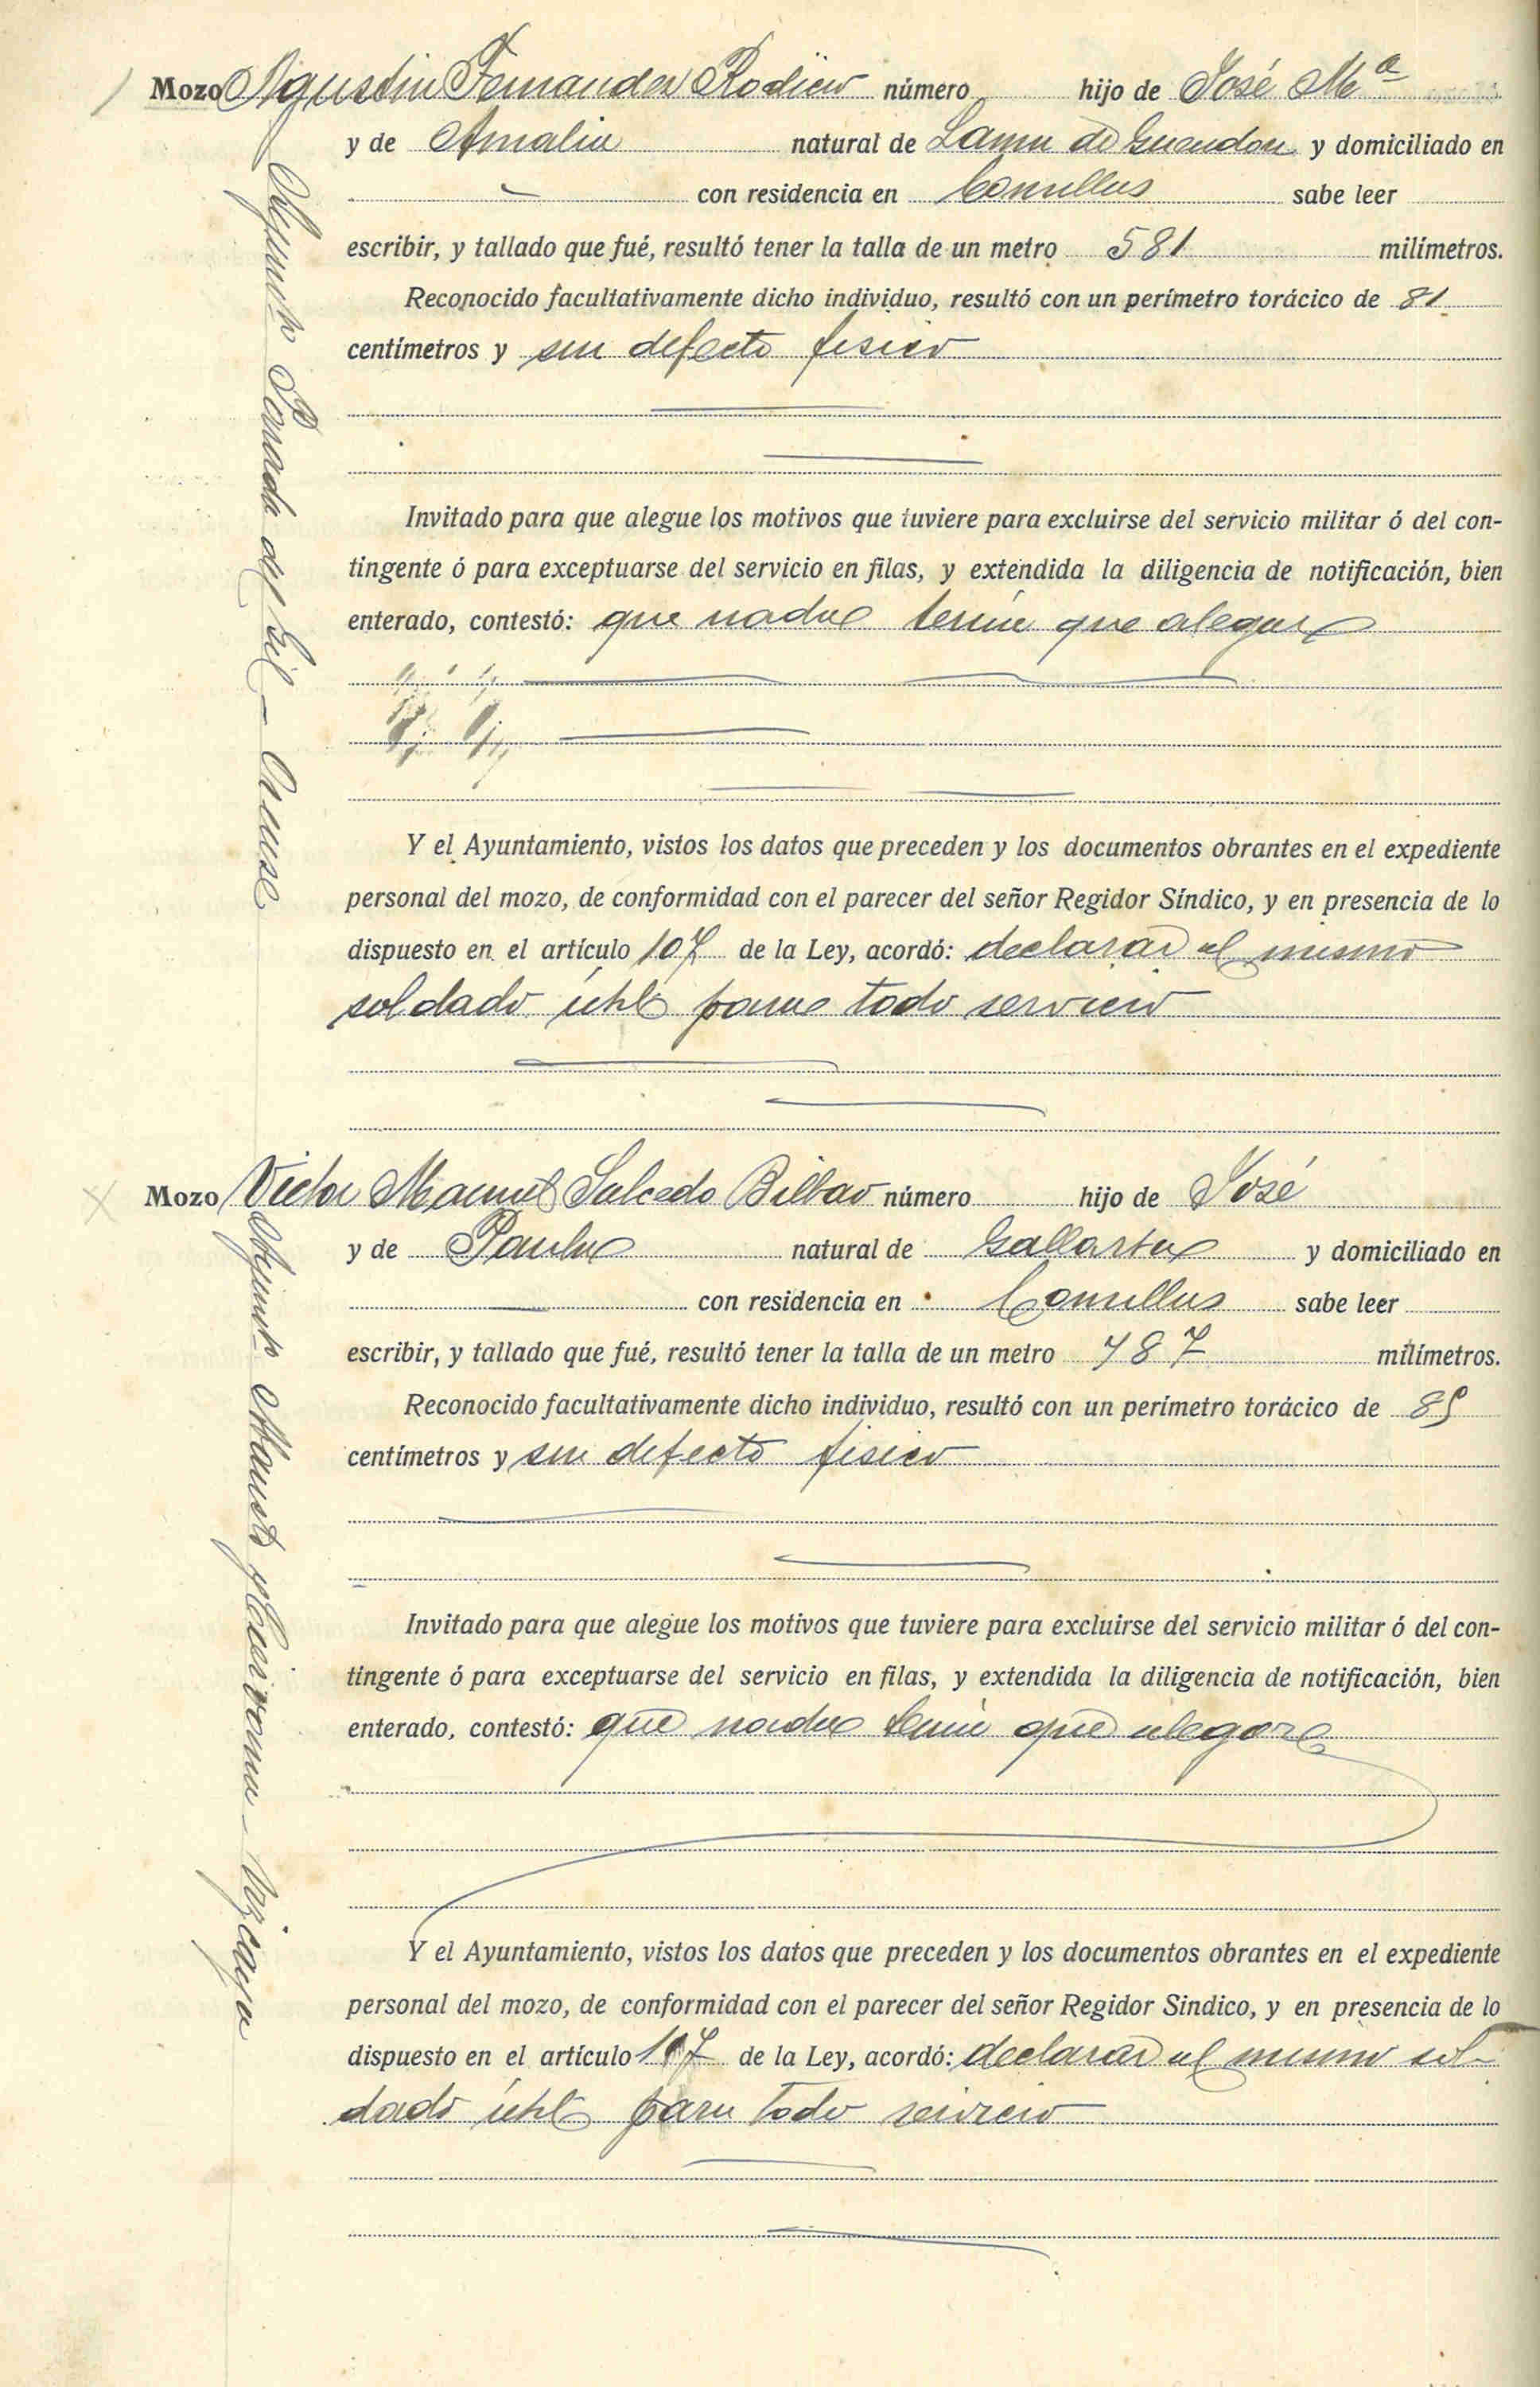 Mozo Agustin Fernandez Rodicio número hijo de José Mª
y de Amalia natural de Lama de y domiciliado en
con residencia en Comillas sabe leer
escribir, y tallado que fué, resultó tener la talla de un metro 581 milímetros.
Reconocido facultativamente dicho individuo, resultó con un perímetro torácico de 81
centímetros y sin defecto fisico
Invitado para que alegue los motivos que tuviere para excluirse del servicio militar ó del con-
tingente ó para exceptuarse del servicio en filas, y extendida la diligencia de notificación, bien
enterado, contestó: que nada tenia que alegar
Y el Ayuntamiento, vistos los datos que preceden y los documentos obrantes en el expediente
personal del mozo, de conformidad con el parecer del señor Regidor Síndico, y en presencia de lo
dispuesto en el artículo 107 de la Ley, acordó: declarar al mismo
soldado útil para todo servicio
Adjunto Parada del Sil - Orense
Mozo Victor Manuel Salcedo Bilbao número hijo de José
y de Paula natural de Gallarta y domiciliado en
con residencia en Comillas sabe leer
escribir, y tallado que fué, resultó tener la talla de un metro 787 milímetros.
Reconocido facultativamente dicho individuo, resultó con un perímetro torácico de 85
centímetros y sin defecto fisico
Invitado para que alegue los motivos que tuviere para excluirse del servicio militar ó del con-
tingente ó para exceptuarse del servicio en filas, y extendida la diligencia de notificación, bien
enterado, contestó: que nada tenia que alegar
Y el Ayuntamiento, vistos los datos que preceden y los documentos obrantes en el expediente
personal del mozo, de conformidad con el parecer del señor Regidor Sindico, y en presencia de lo
dispuesto en el artículo 107 de la Ley, acordó: declarar al mismo sol-
dado útil para todo servicio
Adjunto Abanto y Ciérvana - Vizcaya